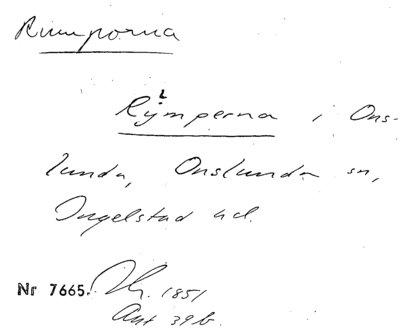 Rumporna
Rymperna i Ons-
lunda, Onslunda sn,
Ingelstad hd.
Nr 7665. 1851
Ant 39 b.